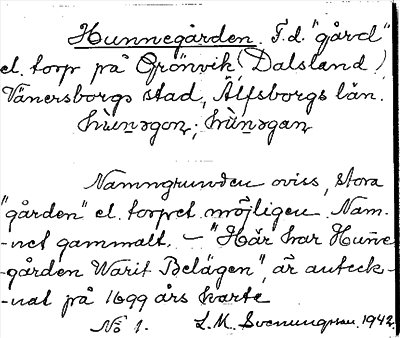 Hunnegården. F.d. "gård"
el. torp på Grönvik (Dalsland),
Vänersborgs stad, Älfsborgs län.
hùnəgoṇ; hùnəgan
Namngrunden oviss, stora
"gården" el. torpet möjligen. Nam-
-net gammalt. – "Här har Huñe
-gården Warit Belägen", är anteck-
-nat på 1699 års karte
No 1. L.M. Svenungsson. 1942.